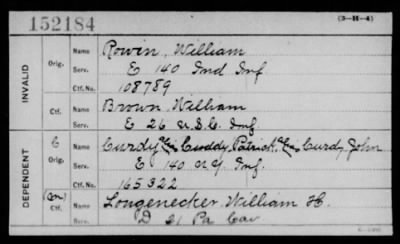 152184
(3-H-4)
INVALID
Orig. Name Rowin, William
Serv. E 140 Ind Inf
Ctf. No. 108789
Ctf. Name Brown, William
Serv. E 26 U.S.C. Inf.
DEPENDENT
C Orig. Name Curdy Cuddy, Patrick, Curdy, John
Serv. E 140 N.Y. Inf.
Ctf. No. 165322
Ctf. Name Longenecker, William H.
Serv. D 21 Pa Cav